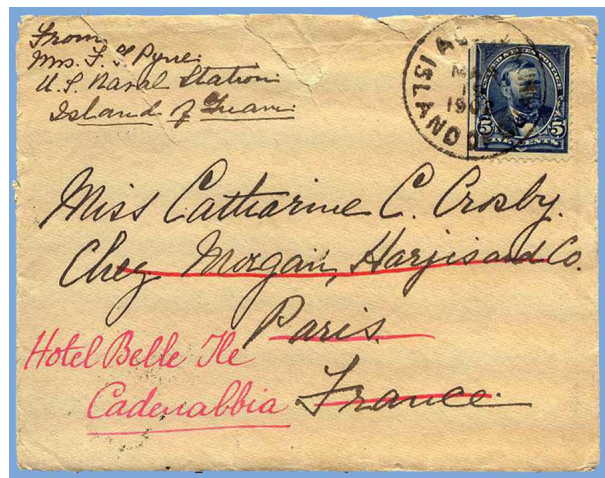 From
Mrs. F. G. Pyne.
U.S. Naval Station
Island of Guam.
ISLAND
5 5
Miss Catharine C. Crosby.
Chez Morgan, Harjis and Co.
Paris
Hotel Belle Ile
Cadenabbia
France.